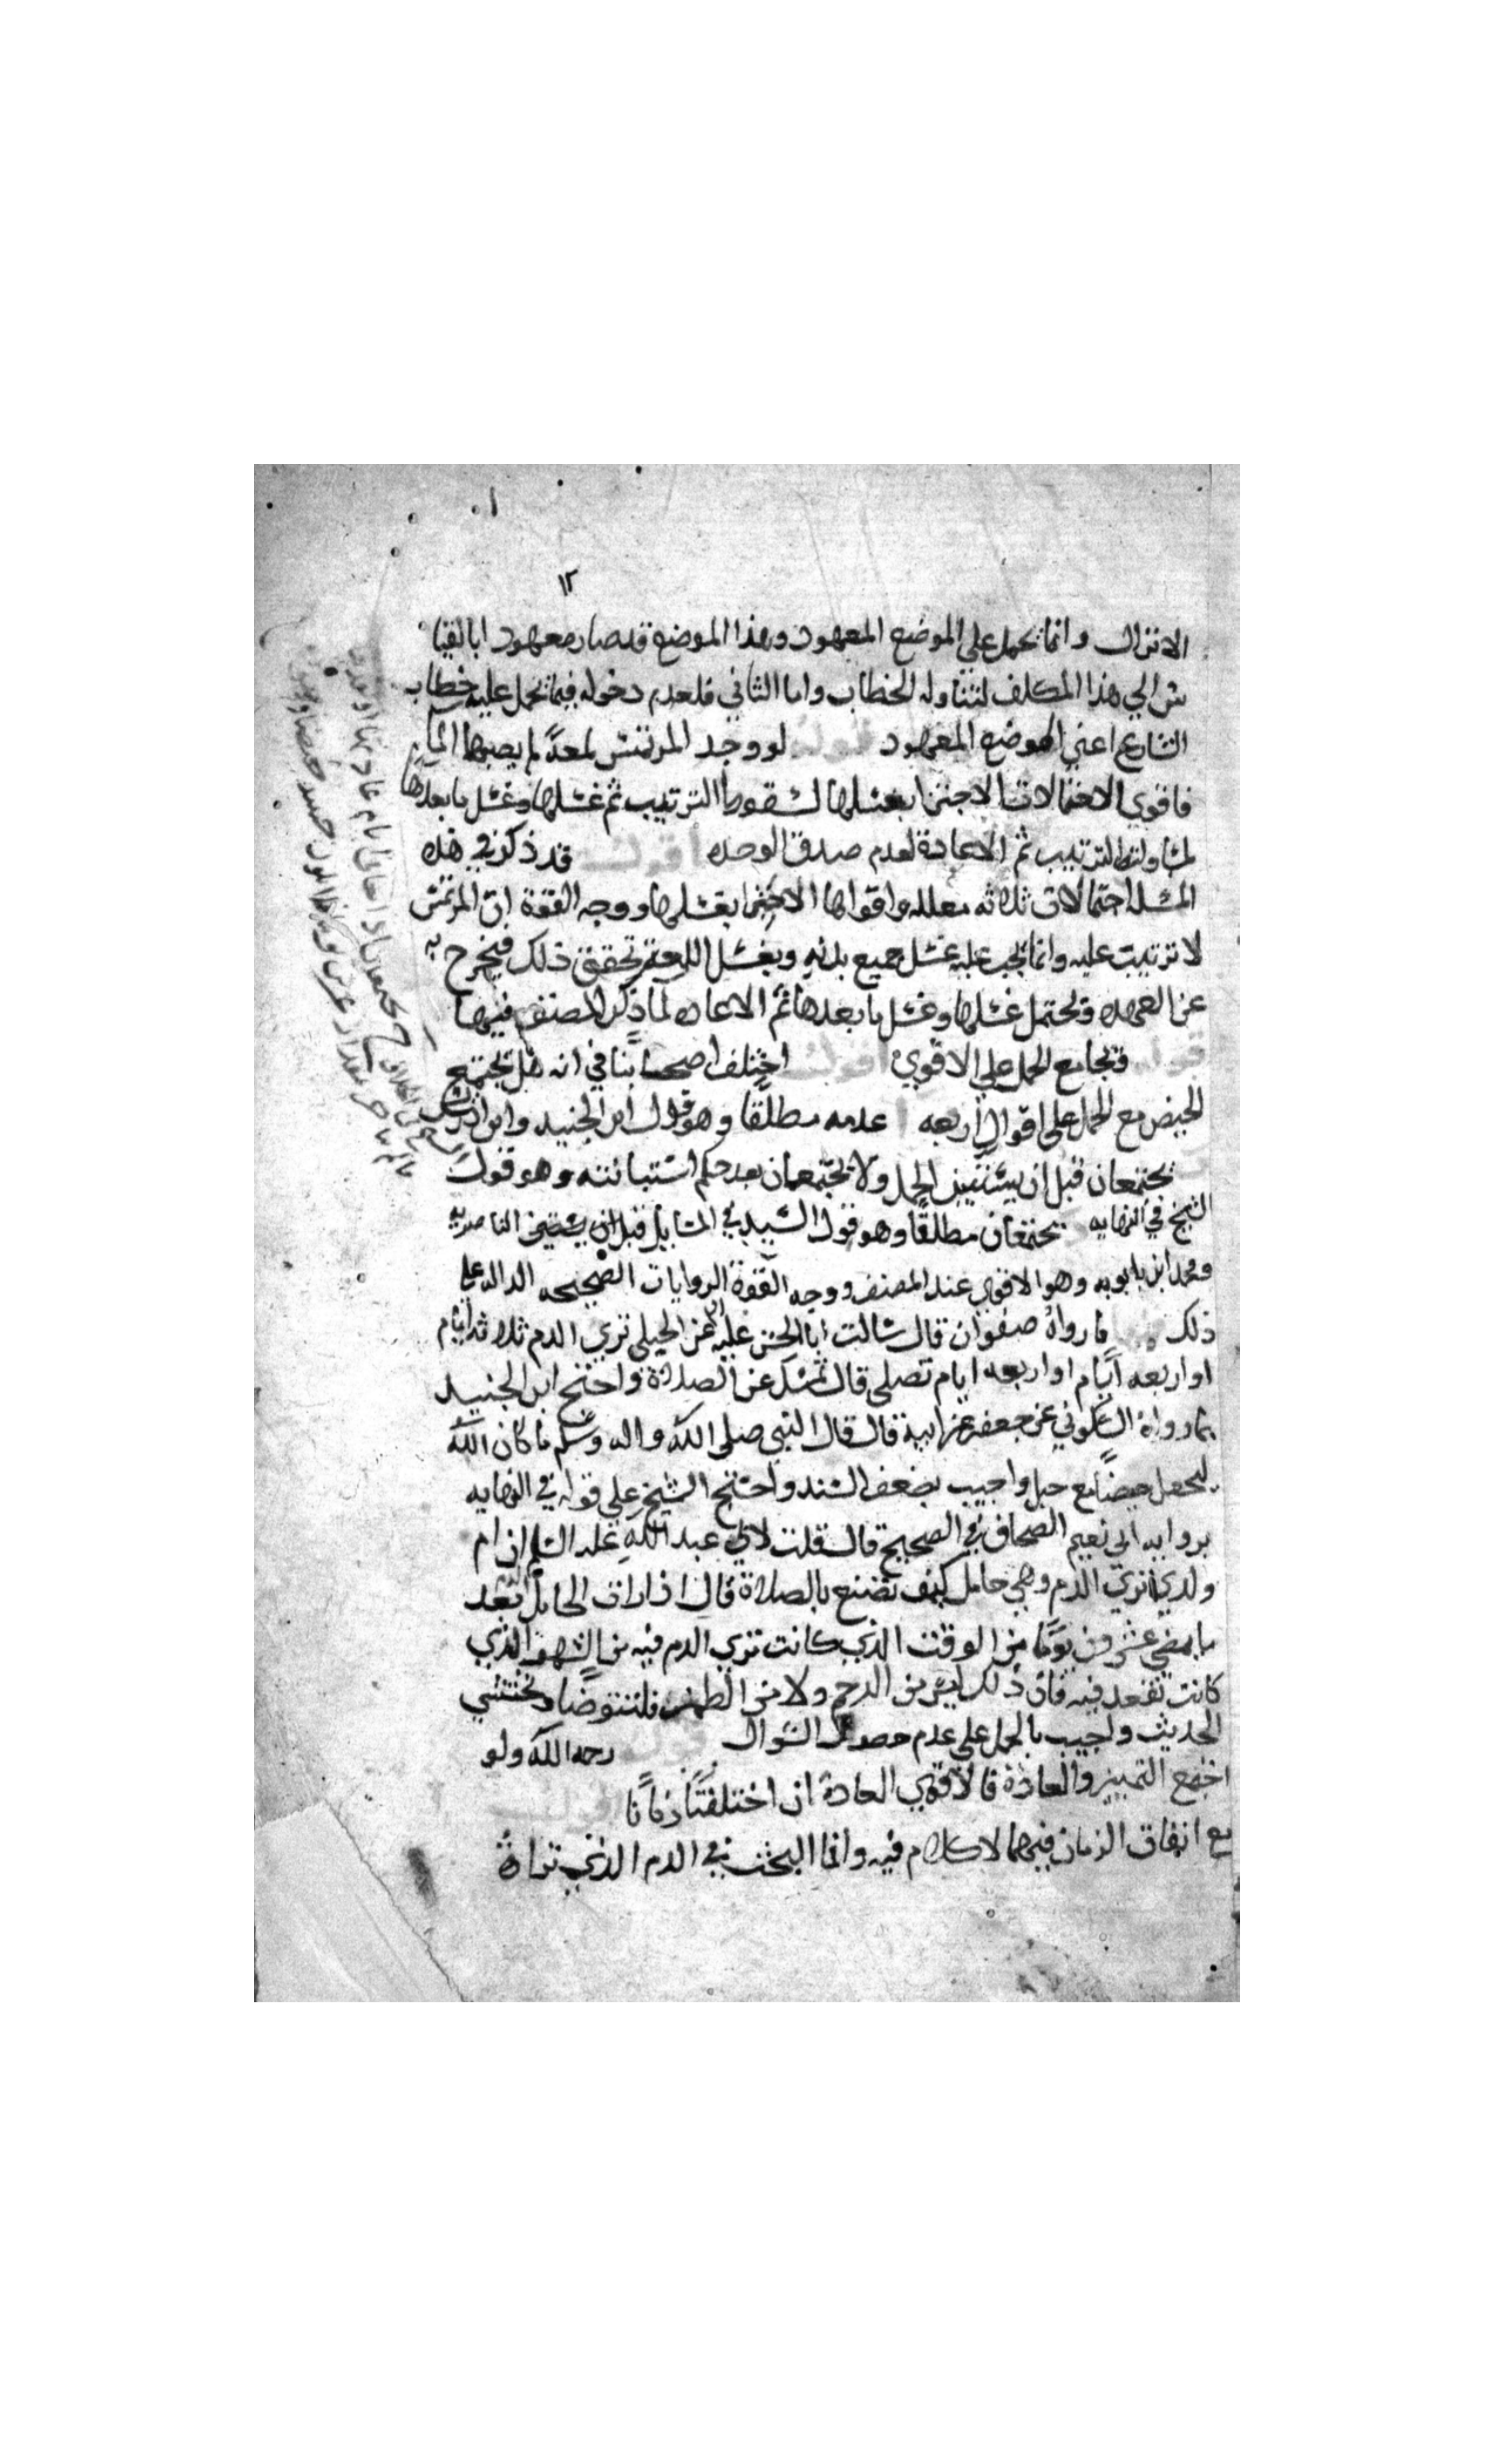 ١٢
الانزال وانما يحمل على الموضع المعهود وهذا الموضع قد صار معهودا بالقيا
س الى هذا المكلف لتناوله الخطاب واما الثاني فلعدم دخوله فيما يحمل عليه خطاب
الشارع اعني الموضع المعهود قوله لو وجد المرتمس لمعة لم يصبها الماء
فاقوى الاحتمالات الاجتزا بغسلها لسقوط الترتيب ثم غسلها وغسل ما بعدها
لمساواته الترتيب ثم الاعادة لعدم صدق الوحده اقول قد ذكر في هذه
المسئله احتمالات ثلاثه معلله واقواها الاجتزا بغسلها ووجه القوة ان المرتمس
لا ترتيب عليه وانما يجب عليه غسل جميع بدنه وبغسل اللمعة تحقق ذلك فيخرج به
عن العهده ويحتمل غسلها وغسل ما بعدها ثم الاعاده لما ذكر المصنف فيها
قوله ويجامع الحمل على الاقوى اقول اختلف اصحابنا في انه هل يجتمع
الحيض مع الحمل على اقوال اربعه ا عدمه مطلقا وهو قول ابن الجنيد وابن ادريس
يجتمعان قبل ان يستبين الحمل ولا يجتمعان بعد حكم استبانته وهو قول
الشيخ في النهايه يجتمعان مطلقا وهو قول السيد في المسايل الناصريه
ومحمد ابن بابويه وهو الاقوى عند المصنف ووجه القوة الروايات الصحيحه الداله على
ذلك ما رواه صفوان قال سالت ابا الحسن عليه عن الحبلى ترى الدم ثلاثه ايام
او اربعه ايام او اربعه ايام تصلى قال تمسك عن الصلاة واحتج ابن الجنيد
بما رواه السكوني عن جعفر عن ابيه قال قال النبي صلى الله واله وسلم ما كان الله
ليجعل حيضا مع حبل واجيب بضعف السند واحتج الشيخ على قوله في النهايه
بروايه ابى نعيم الصحاف في الصحيح قال قلت لابي عبد الله عليه السلم ان ام
ولدي ترى الدم وهي حامل كيف تصنع بالصلاة قال اذا رات الحامل الدم بعد
ما يمضي عشرون يوما من الوقت الذي كانت ترى الدم فيه من الشهر الذي
كانت تقعد فيه فان ذلك ليس من الرحم ولا من الطمث فلتتوضا وتحتشي
الحديث واجيب بالحمل على عدم حصول السوال قوله رحمه الله ولو
اجتمع التمييز والعادة فالاقوى العادة ان اختلفتا زمانا اقول
مع اتفاق الزمان فيهما لا كلام فيه وانما البحث في الدم الذي تراه